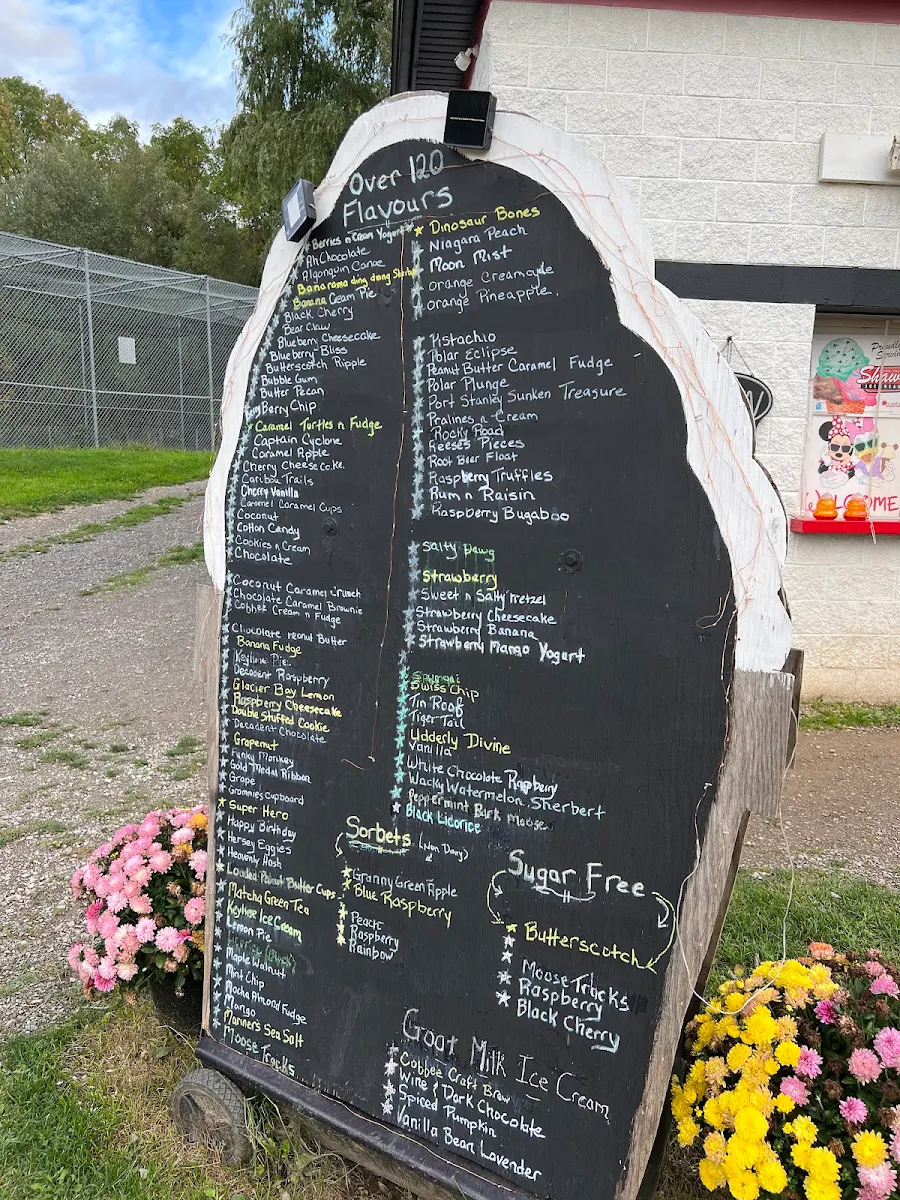 Over 120
Flavours
Berries n Cream Yogurt
Ah Chocolate
Algonquin Canoe
Banarama ding dang Sherb
Banana Cream Pie
Black Cherry
Bear Claw
Blueberry Cheesecake
Blueberry Bliss
Butterscotch Ripple
Bubble Gum
Butter Pecan
Berry Chip
Caramel Turtles n Fudge
Captain Cyclone
Caramel Apple
Cherry Cheesecake
Caribou Trails
Cherry Vanilla
Caramel Caramel Cups
Coconut
Cotton Candy
Cookies n Cream
Chocolate
Coconut Caramel Crunch
Chocolate Caramel Brownie
Cobhee Cream n Fudge
Chocolate Peanut Butter
Banana Fudge
Keylime Pie
Decadent Raspberry
Glacier Bay Lemon
Raspberry Cheesecake
Double Stuffed Cookie
Decadent Chocolate
Grapenut
Funky Monkey
Gold Medal Ribbon
Grape
Grannies Cupboard
Super Hero
Happy Birthday
Hersey Eggies
Heavenly Hash
Loaded Peanut Butter Cups
Matcha Green Tea
Keylime Ice Cream
Lemon Pie
Maple Walnut
Mint Chip
Mocha Almond Fudge
Mango
Manner's Sea Salt
Moose Tracks
Dinosaur Bones
Niagara Peach
Moon Mist
orange Creamcycle
orange Pineapple.
Pistachio
Polar Eclipse
Peanut Butter Caramel Fudge
Polar Plunge
Port Stanley Sunken Treasure
Pralines n Cream
Rocky Road
Reeses Pieces
Root Beer Float
Raspberry Truffles
Rum n Raisin
Raspberry Bugaboo
Salty Dawg
Strawberry
Sweet n Salty Pretzel
Strawberry Cheesecake
Strawberry Banana
Strawberry Mango Yogurt
Spumoni
Swiss Chip
Tin Roof
Tiger Tail
Udderly Divine
Vanilla
White Chocolate Raspberry
Wacky Watermelon Sherbert
Peppermint Bark Moose
Black Licorice
Sorbets (Non Dairy)
Granny Green Apple
Blue Raspberry
Peach
Raspberry
Rainbow
Sugar Free
Butterscotch
Moose Tracks
Raspberry
Black Cherry
Goat Milk Ice Cream
Cobbee Craft Brew
Wine & Dark Chocolate
Spiced Pumpkin
Vanilla Bean Lavender
Proudly
Servin
Shaw
ICE CREAM
WELCOME